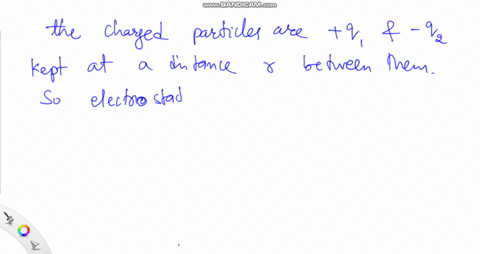 www.BANDICAM.com
the charged particles are +q1 & -q2
kept at a distance r between them.
So electrostad